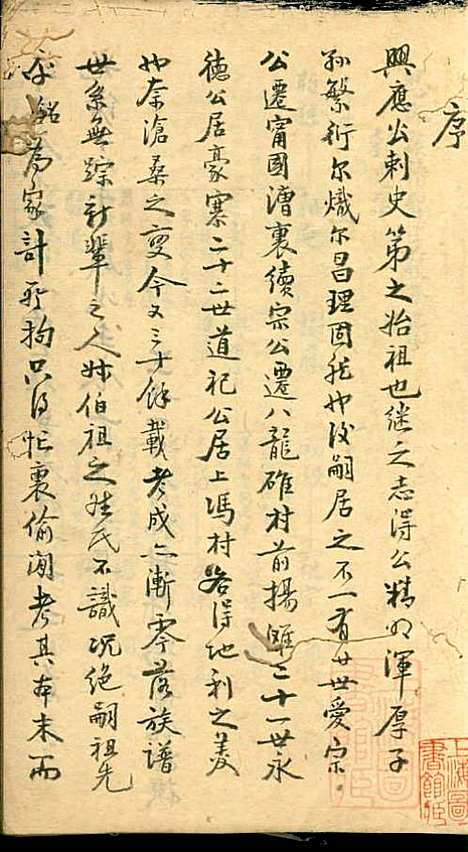 序
興應公刺史第之始祖也继之志得公精明渾厚子
孙繁衍尔熾尔昌理固然也後嗣居之不一有廿世爱宗
公遷甯國漕裏續宗公遷八龍碓村前揚灘二十一世永
德公居豪寨二十二世道祀公居上馮村各得地利之美
也奈滄桑之变今又三十餘載老成亦漸零落族譜
世系無踪新輩之人姊伯祖之姓氏不識况絶嗣祖先
乎銘為家計所拘只得忙裏偷闲考其本末而
上海圖
書館